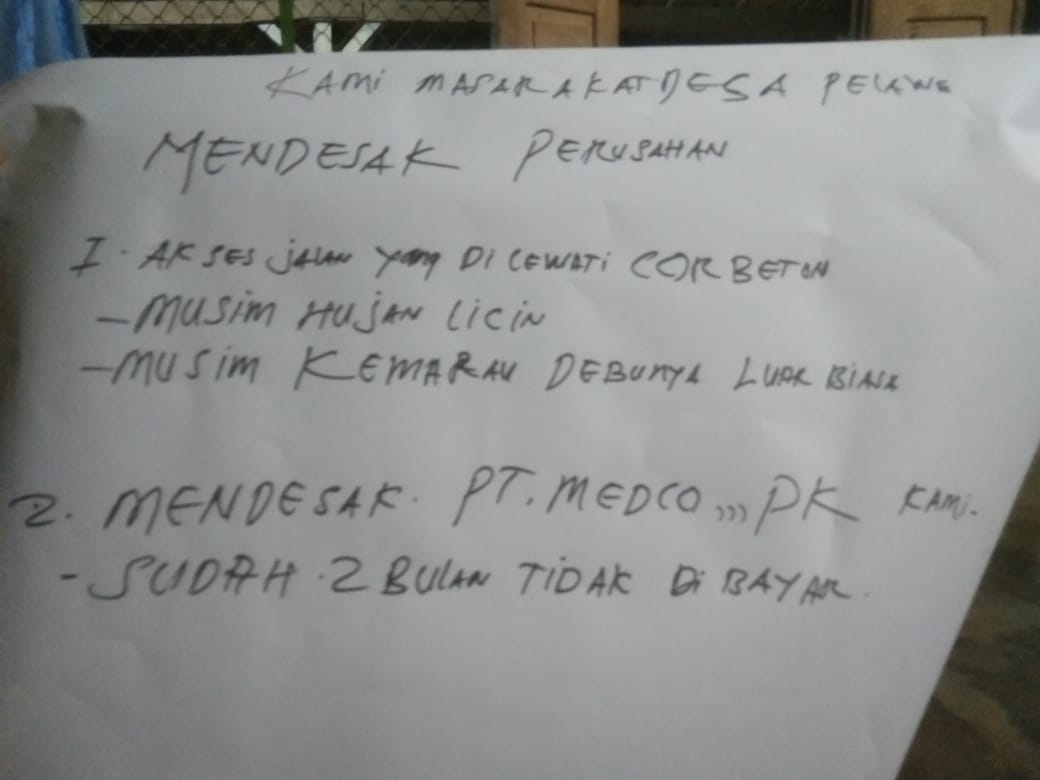 KAMi MASARAKAT DESA PELAWE
MENDESAK PERUSAHAN
I. AKSES jALAN yang Di LEWATi COR BETON
- MUSim HUjAN LiCiN
- MUSim KEMARAU DEBUNYA LUAR BiASA
2. MENDESAK. PT. MEDCO,,, PK KAMi.
- SUDAH. 2 BULAN TiDAK Di BAYAR.